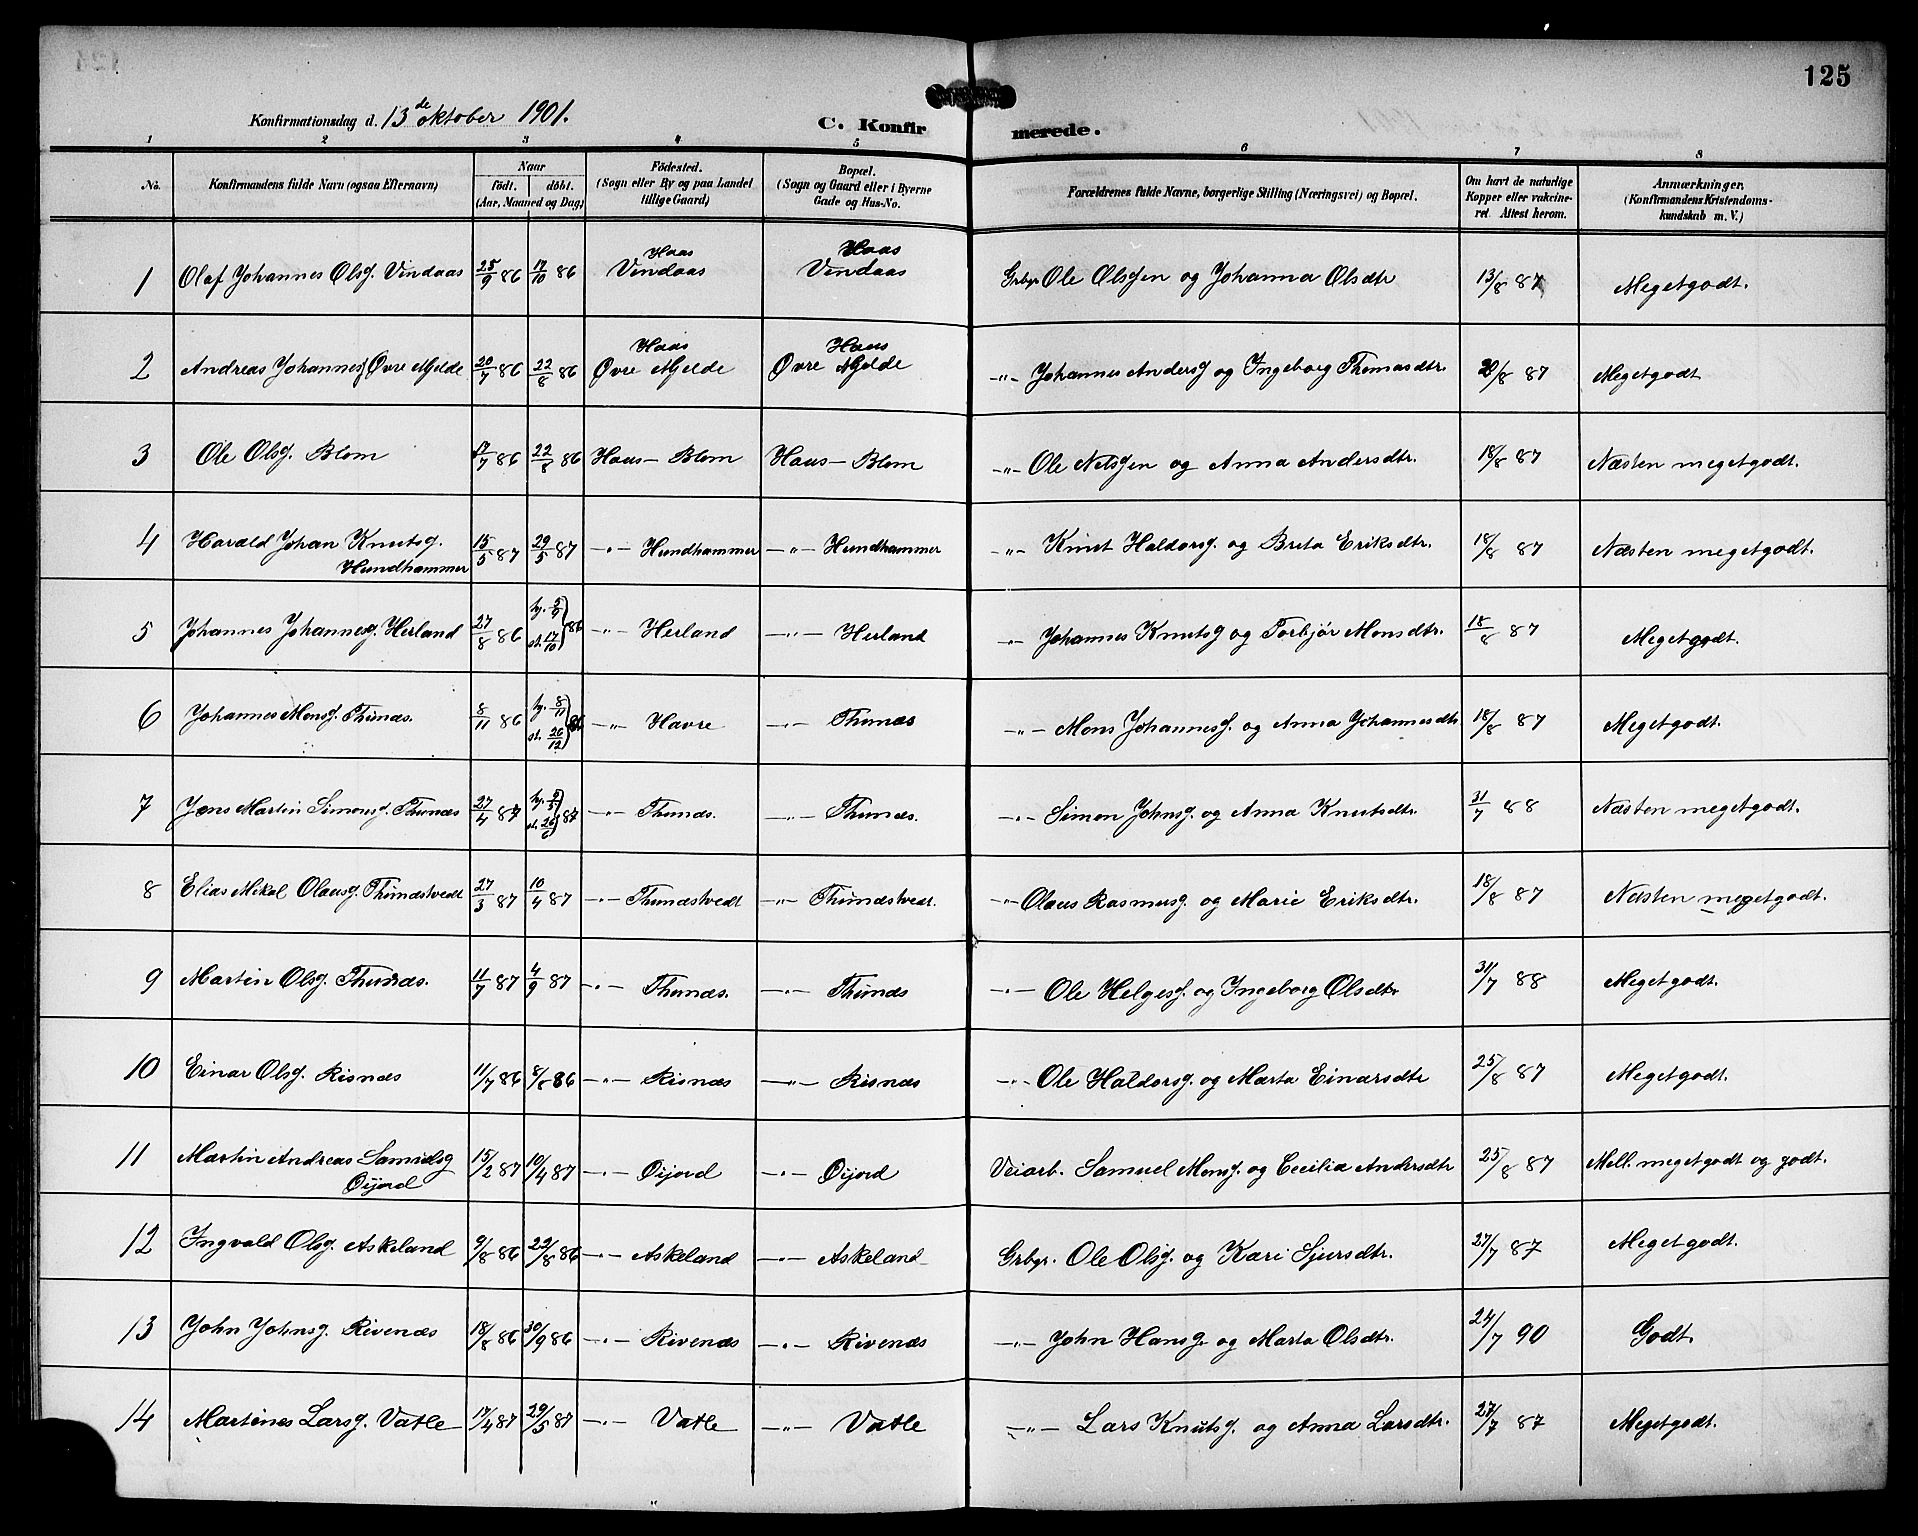 125
Konfirmationsdag d. 13de oktober 1901.
C. Konfirmerede.
1 2 3 4 5 6 7 8
No. Konfirmandens fulde Navn (ogsaa Efternavn) Naar födt. döbt. (Aar, Maaned og Dag) Födested. (Sogn eller By og paa Landet tillige Gaard) Bopæl. (Sogn og Gaard eller i Byerne Gade og Hus-No. Forældrenes fulde Navne, borgerlige Stilling (Næringsvei) og Bopæl. Om havt de naturlige Kopper eller vakcineret. Attest herom. Anmærkninger. (Konfirmandens Kristendomskundskab m. V.)
1 Olaf Johannes Olsg. Vindaas 25/9 86 17/10 86 Haas Vindaas Haas Vindaas Grbr. Ole Olsgen og Johanna Olsdtr 13/8 87 Megetgodt.
2 Andreas Johannesg Övre Mjelde 20/7 86 22/8 86 Haas Övre Mjelde Haus Övre Mjelde -"- Johannes Andersg og Ingeborg Thomasdtr. 20/8 87 Megetgodt
3 Ole Olsg. Blom 17/7 86 22/8 86 Haus - Blom Haus - Blom -"- Ole Nelsgen og Anna Andersdtr. 18/8 87 Næsten megetgodt.
4 Harald Johan Knutsg. Hundhammer 15/5 87 29/5 87 -"- Hundhammer -"- Hundhammer -"- Knut Haldorsg. og Brita Eriksdtr. 18/8 87 Næsten megetgodt.
5 Johannes Johannesg. Herland 27/8 86 hj. 5/9 st. 17/10 } 86 -"- Herland -"- Herland -"- Johannes Knutsg og Torbjör Monsdtr. 18/8 87 Megetgodt.
6 Johannes Monsg. Thunæs. 8/11 86 hj. 8/11 st. 26/12 } 86 -"- Havre -"- Thunæs -"- Mons Johannesg. og Anna Johannesdtr 18/8 87 Megetgodt.
7 Jens Martin Simonsg. Thunæs 27/4 87 hj. 5/5 st. 26/6 } 87 -"- Thunæs. -"- Thunæs. -"- Simon Johnsg. og Anna Knutsdtr. 31/7 88 Næsten megetgodt.
8 Elias Mikal Olausg. Thunæstvedt 27/3 87 10/4 87 -"- Thunæstvedt -"- Thunæstvedt. -"- Olaus Rasmusg. og Marie Eriksdtr. 18/8 87 Næsten megetgodt.
9 Martin Olsg. Thunæs. 11/7 87 4/9 87 -"- Thunæs. -"- Thunæs -"- Ole Helgesg. og Ingeborg Olsdtr 31/7 88 Megetgodt.
10 Einar Olsg. Risnæs 11/7 86 8/8 86 -"- Risnæs -"- Risnæs -"- Ole Haldorsg. og Marta Einarsdtr 25/8 87 Megetgodt.
11 Martin Andreas Samulsg Öijord 15/2 87 10/4 87 -"- Öijord -"- Öijord Veiarb. Samuel Monsg. og Cecilia Andersdtr 25/8 87 Mell. megetgodt og godt.
12 Ingvald Olsg. Askeland 9/8 86 22/8 86 -"- Askeland -"- Askeland Grbr. Ole Olsg. og Kari Sjursdtr. 27/7 87 Megetgodt.
13 John Johnsg. Rivenæs 18/8 86 30/9 86 -"- Rivenæs -"- Rivenæs -"- John Hansg og Marta Olsdtr. 24/7 90 Godt.
14 Martines Larsg. Vatle 17/4 87 29/5 87 -"- Vatle -"- Vatle -"- Lars Knutsg. og Anna Larsdtr. 27/7 87 Megetgodt.